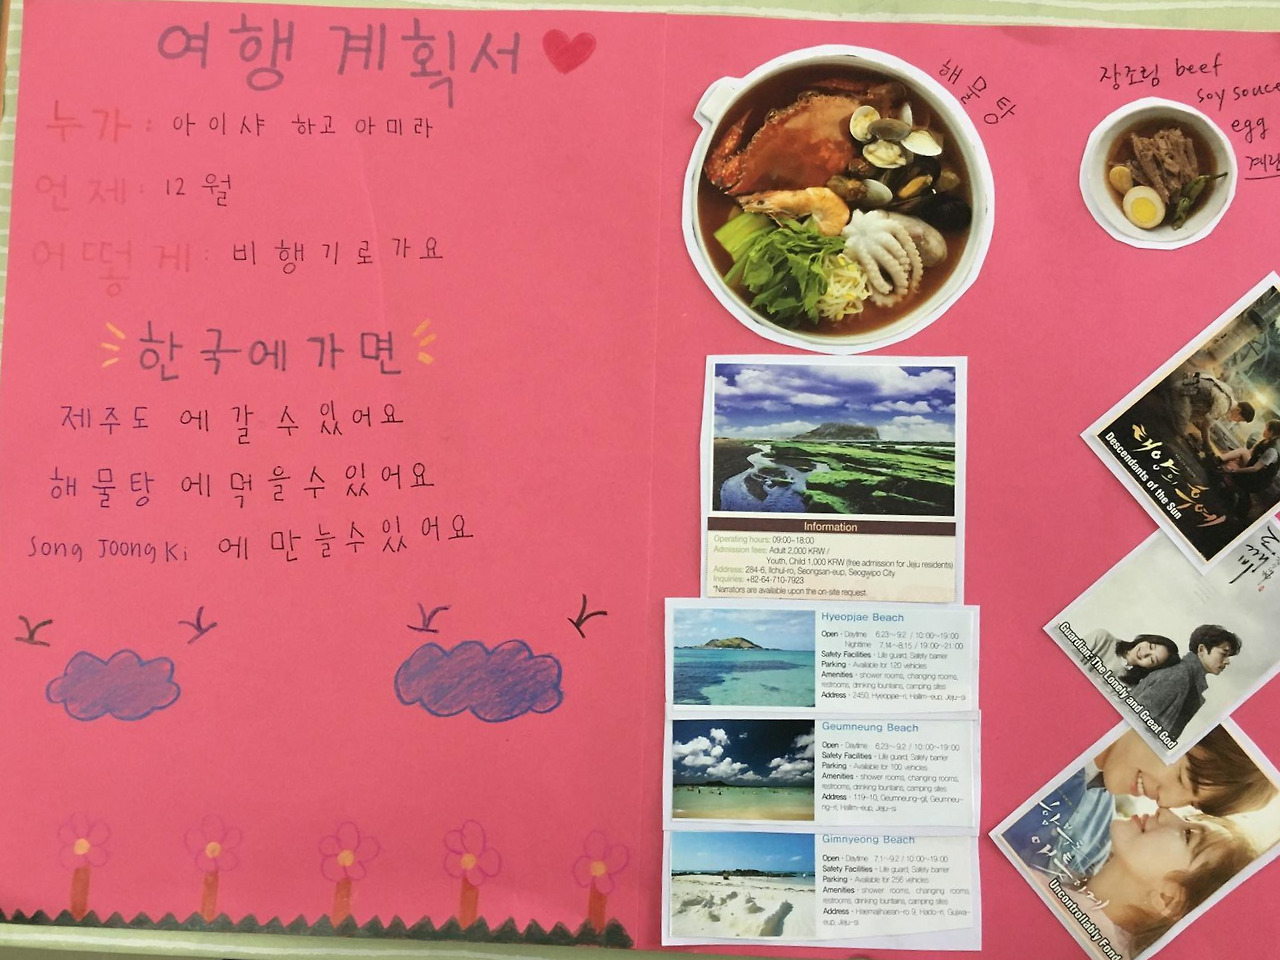 여행 계획서
누가: 아이샤 하고 아미라
언제: 12월
어떻게: 비행기로가요
한국에가면
제주도 에 갈 수 있어요
해물탕 에 먹을수있어요
Song Joong Ki 에 만늘수있어요
해물탕
장조림 beef
soy souce
egg
계란
Information
Operating hours: 09:00~18:00
Admission fees: Adult 2,000 KRW /
Youth, Child 1,000 KRW (free admission for Jeju residents)
Address: 284-6, Ilchul-ro, Seongsan-eup, Seogwipo City
Inquiries: +82-64-710-7923
*Narrators are available upon the on-site request.
Hyeopjae Beach
Open - Daytime 6.23~9.2 / 10:00~19:00
Nighttime 7.14~8.15 / 19:00~21:00
Safety Facilities - Life guard, Safety barrier
Parking - Available for 120 vehicles
Amenities - shower rooms, changing rooms,
restrooms, drinking fountains, camping sites
Address - 2450, Hyeopjae-ri, Hallim-eup, Jeju-si
Geumneung Beach
Open - Daytime 6.23~9.2 / 10:00~19:00
Safety Facilities - Life guard, Safety barrier
Parking - Available for 100 vehicles
Amenities - shower rooms, changing rooms,
restrooms, drinking fountains, camping sites
Address - 119-10, Geumneung-gil, Geumneu-
ng-ri, Hallim-eup, Jeju-si
Gimnyeong Beach
Open - Daytime 7.1~9.2 / 10:00~19:00
Safety Facilities - Life guard, Safety barrier
Parking - Available for 256 vehicles
Amenities - shower rooms, changing rooms,
restrooms, drinking fountains, camping sites
Address - Haemajihaean-ro 9, Hado-ri, Gujwa-
eup, Jeju-si
태양의 후예
Descendants of the Sun
Guardian: The Lonely and Great God
함부로
애틋하게
Uncontrollably Fond